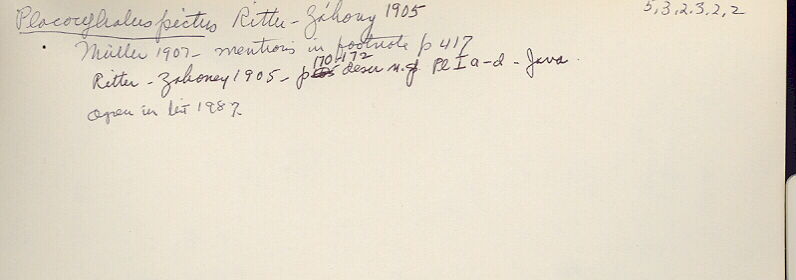 Placocephalus pictus Ritter-Záhony 1905
5,3,2,3,2,2
Müller 1907 - mentions in footnote p 417
Ritter-Zahoney 1905 - p 170-172 descr n.g. Pl I a-d - Java.
open in lit 1987